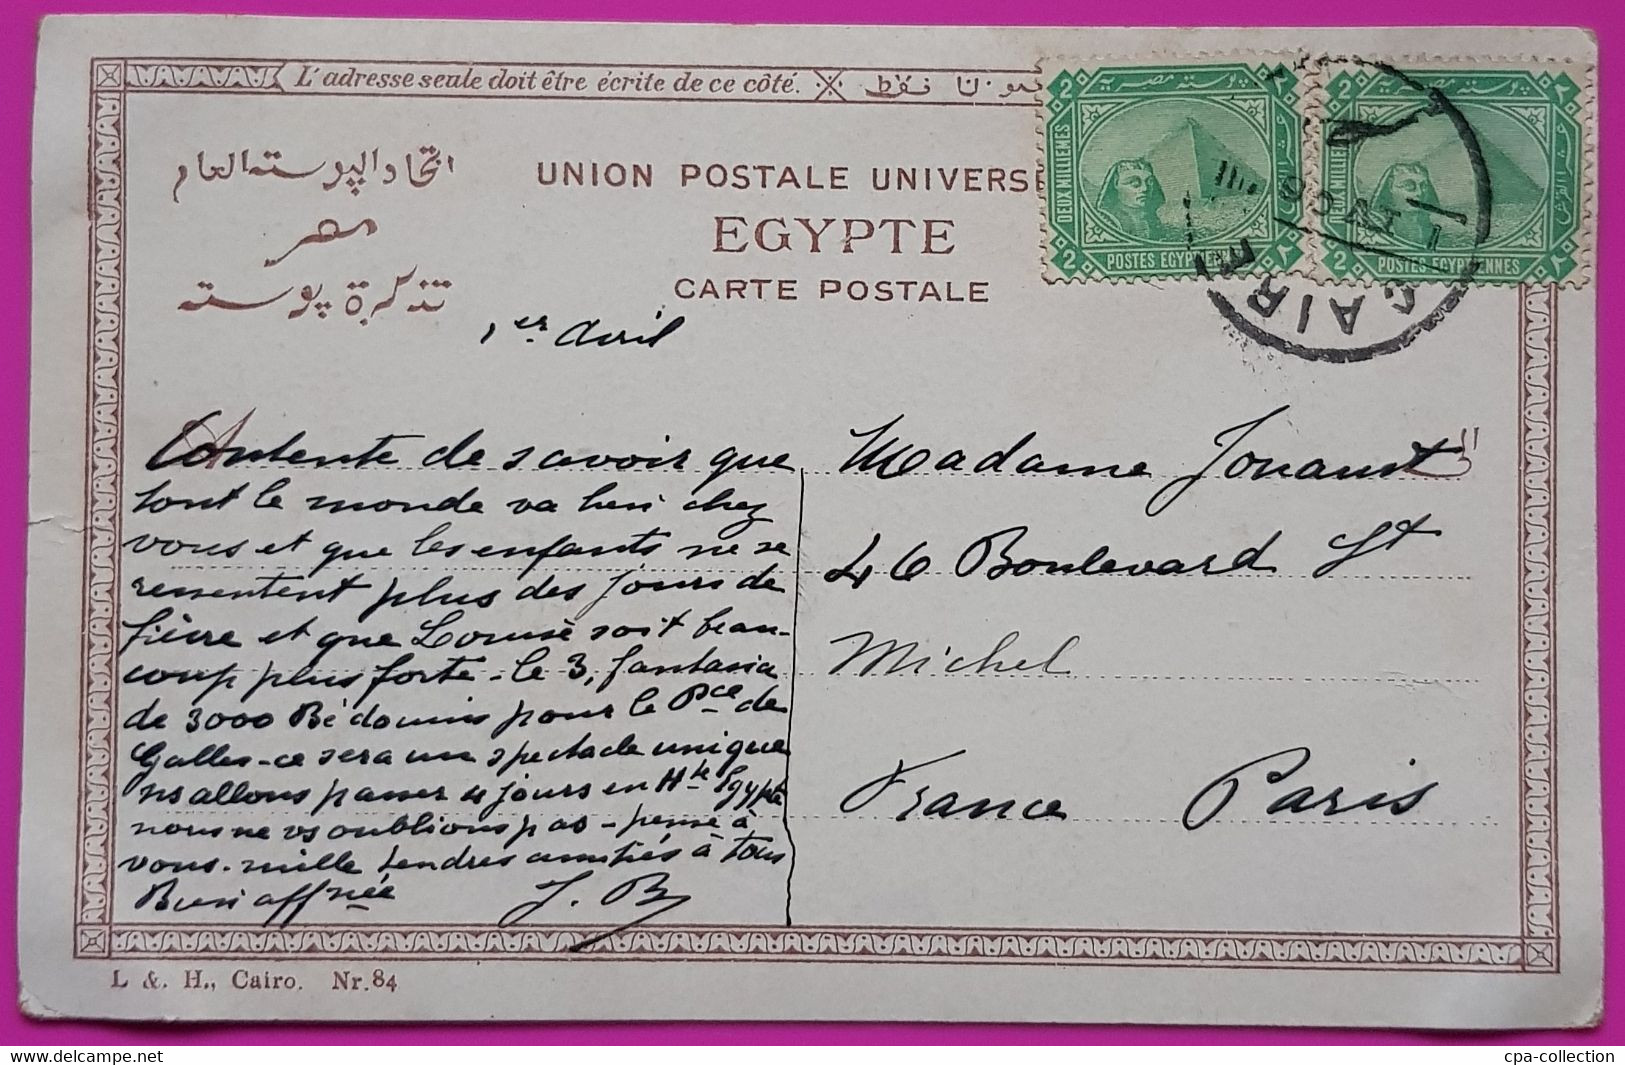 L'adresse seule doit être écrite de ce côté.
اتحاد البوسته العام
مصر
تذكرة بوسته
UNION POSTALE UNIVERSE
EGYPTE
CARTE POSTALE
2 بوسته مصرية ٢
DEUX MILLIEMES
2 POSTES EGYPTIENNES ٢
2 بوسته مصرية ٢
DEUX MILLIEMES
2 POSTES EGYPTIENNES ٢
CAIRE
1er Avril
Contente de savoir que
tout le monde va bien chez
vous et que les enfants ne se
ressentent plus des jours de
fièvre et que Louise soit beau-
coup plus forte - le 3, fantasia
de 3000 Bédouins pour le Pce de
Galles - ce sera un spectacle unique
ns allons passer 4 jours en Hte Egypte
nous ne vs oublions pas - pense à
vous - mille tendres amitiés à tous
Bien affnée J. B
Madame Jouaust
46 Boulevard St
Michel
France Paris
L. & H., Cairo. Nr. 84
https://www.delcampe.net
cpa-collection